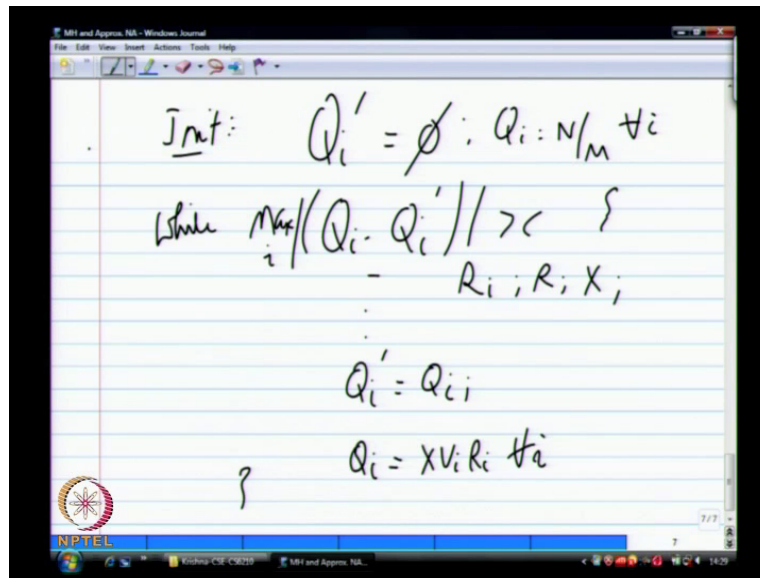 MH and Approx. NA - Windows Journal
File Edit View Insert Actions Tools Help
Init: Qi' = ø; Qi: N/M ∀i
while Max i |(Qi - Qi')| > ε {
Ri; R; X;
Qi' = Qi;
Qi = XViRi ∀i
}
7/7
7
NPTEL
Krishna-CSE-CS6210
MH and Approx. NA...
14:29